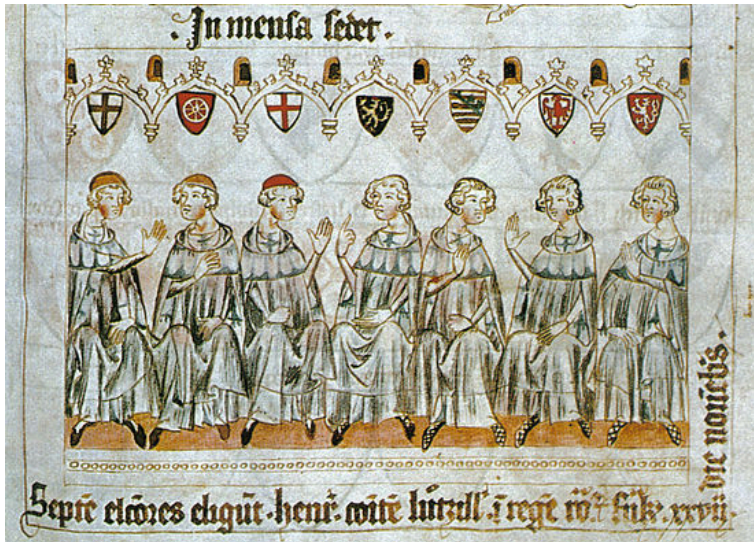 · In mensa sedet ·
Septē elcōres eligūt · henr̄ · cōitē lutzill' · ī regē rō xxvii ·
die nouēbr̄is ·